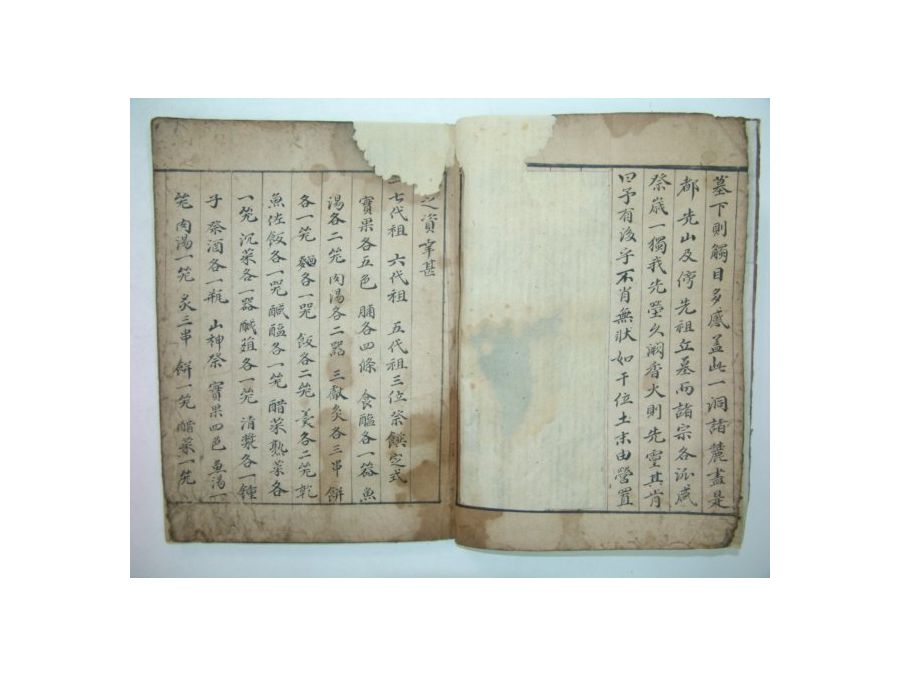 墓下則觸目多感盖此一洞諸麓盡是
都先山及傍先祖立墓而諸宗各派咸
祭歲一獨我先塋久阙香火則先靈其肯
曰予有後乎不肖無狀如干位土末由營置
之資幸甚
七代祖 六代祖 五代祖三位祭饌定式
實果各五色 脯各四條 食醢各一器 魚
湯各二笎 肉湯各二器 三獻炙各三串 餠
各一笎 麵各一咒 飯各二笎 羹各二笎 乾
魚佐飯各一咒 醎醢各一笎 醋菜熟菜各
一笎 沉菜各一器 醎葅各一笎 清漿各一鍾
子 祭酒各一瓶 山神祭 實果四色 魚湯一
笎 肉湯一笎 炙三串 餠一笎 醋菜一笎